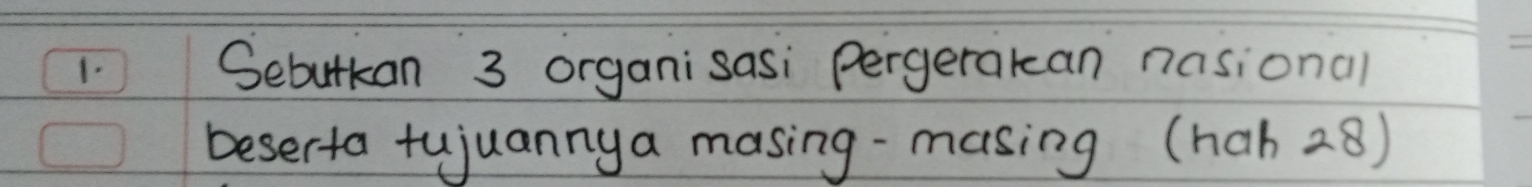 1. Sebutkan 3 organisasi Pergerakan nasional
beserta tujuannya masing-masing (hah 28)